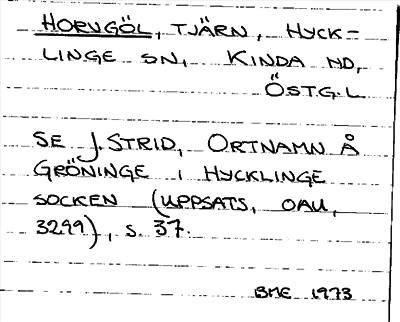 HORVGÖL, TJÄRN, HYCK-
LINGE SN, KINDA HD,
ÖSTG. L
SE J. STRID, ORTNAMN Å
GRÖNINGE I HYCKLINGE
SOCKEN (UPPSATS, OAU,
3299), S. 37.
BME 1973